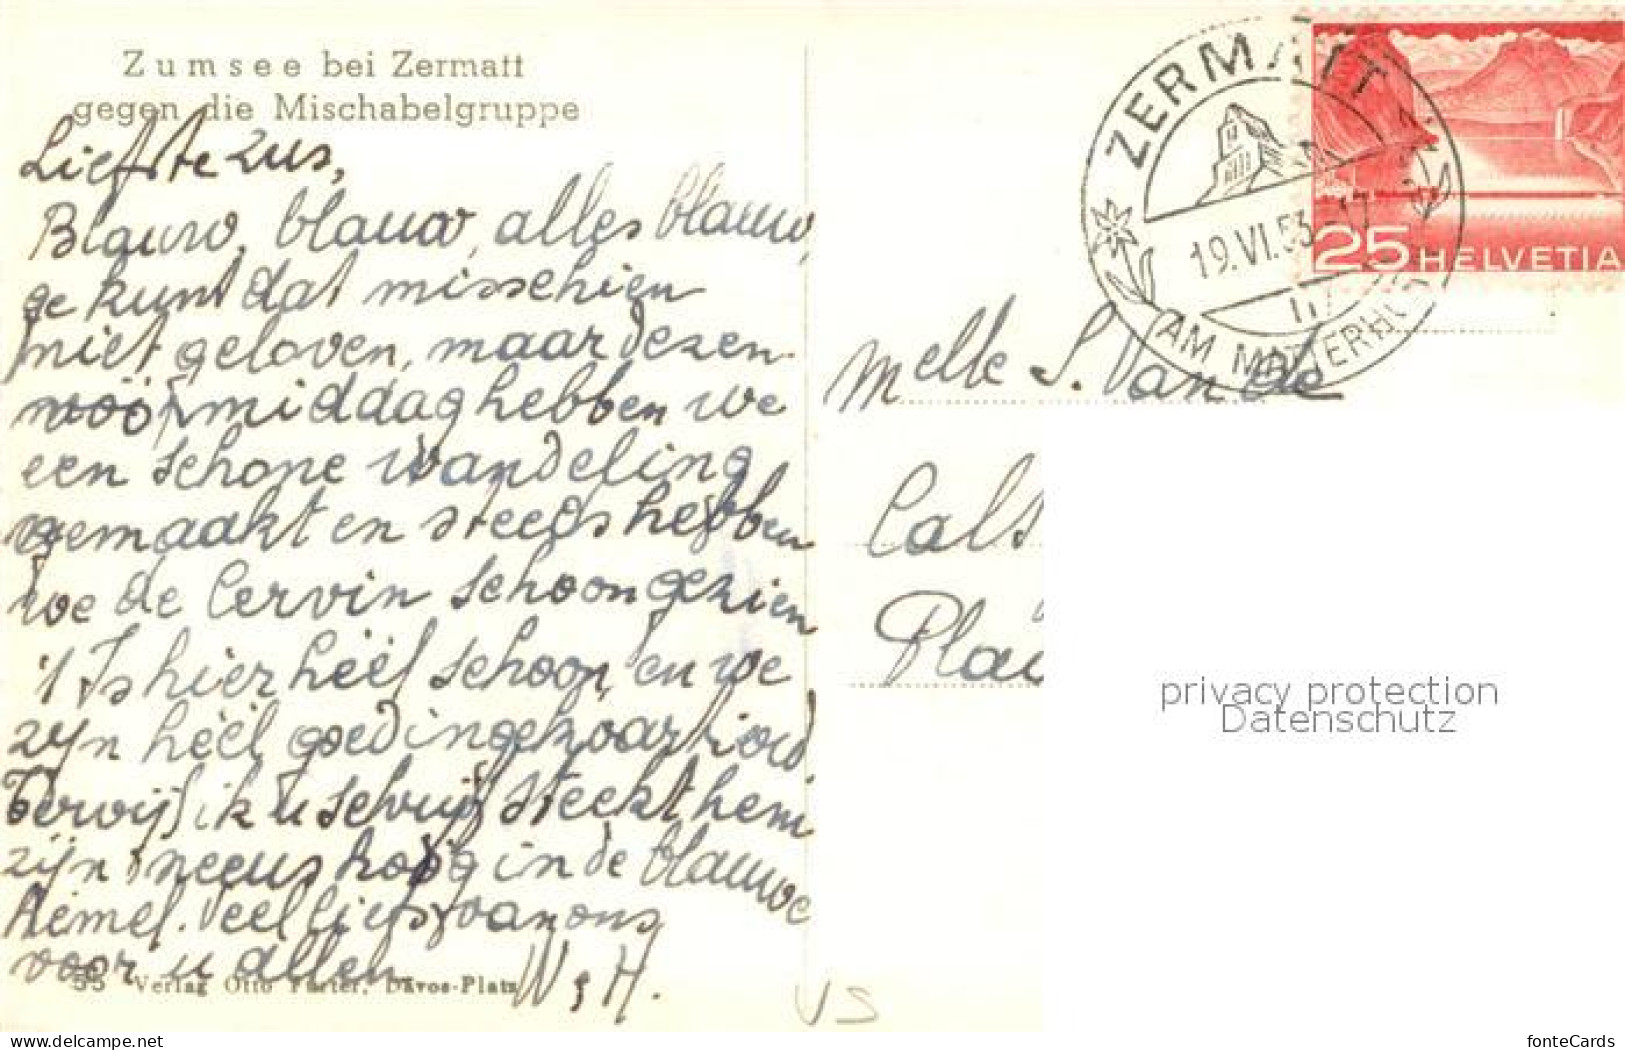 Zumsee bei Zermatt
gegen die Mischabelgruppe
Liefste zus,
Blauw, blauw, alles blauw,
ge kunt dat misschien
niet geloven, maar dezen
vóór middag hebben we
een schone wandeling
gemaakt en steeds hebben
we de Cervin schoon gezien
't Is hier héél schoon, en we
zijn héél goed
Terwijl ik u schrijf steekt hem
zijn neus hoog in de blauwe
hemel. Veel liefs van ons
voor u allen
55 Verlag Otto Furter, Davos-Platz
W & H.
ZERMATT
19.VI.53-17
AM MATTERHORN
25 HELVETIA
Melle S. Van de
Cals
Pla
privacy protection
Datenschutz
VS
www.delcampe.net
fonteCards